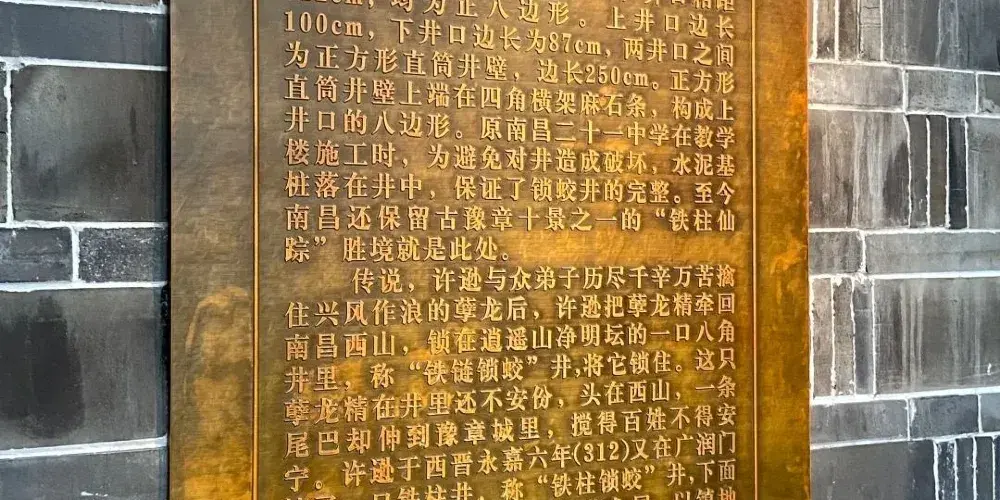 为正八边形。上井口边长
100cm，下井口边长为87cm，两井口之间
为正方形直筒井壁，边长250cm。正方形
直筒井壁上端在四角横架麻石条，构成上
井口的八边形。原南昌二十一中学在教学
楼施工时，为避免对井造成破坏，水泥基
桩落在井中，保证了锁蛟井的完整。至今
南昌还保留古豫章十景之一的“铁柱仙
踪”胜境就是此处。
传说，许逊与众弟子历尽千辛万苦擒
住兴风作浪的孽龙后，许逊把孽龙精牵回
南昌西山，锁在逍遥山净明坛的一口八角
井里，称“铁链锁蛟”井,将它锁住。这只
孽龙精在井里还不安份，头在西山，一条
尾巴却伸到豫章城里，搅得百姓不得安
宁。许逊于西晋永嘉六年(312)又在广润门
口铁柱井，称“铁柱锁蛟”井,下面